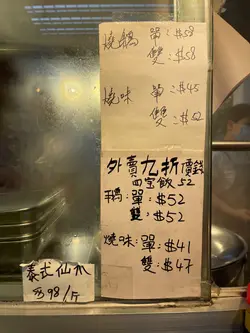 燒鵝 單:$58
雙:$58
燒味 單:$45
雙:$52
外賣九折價錢
四宝飯 52
鵝:單:$52
雙:$52
燒味:單:$41
雙:$47
泰式仙爪
$98/斤